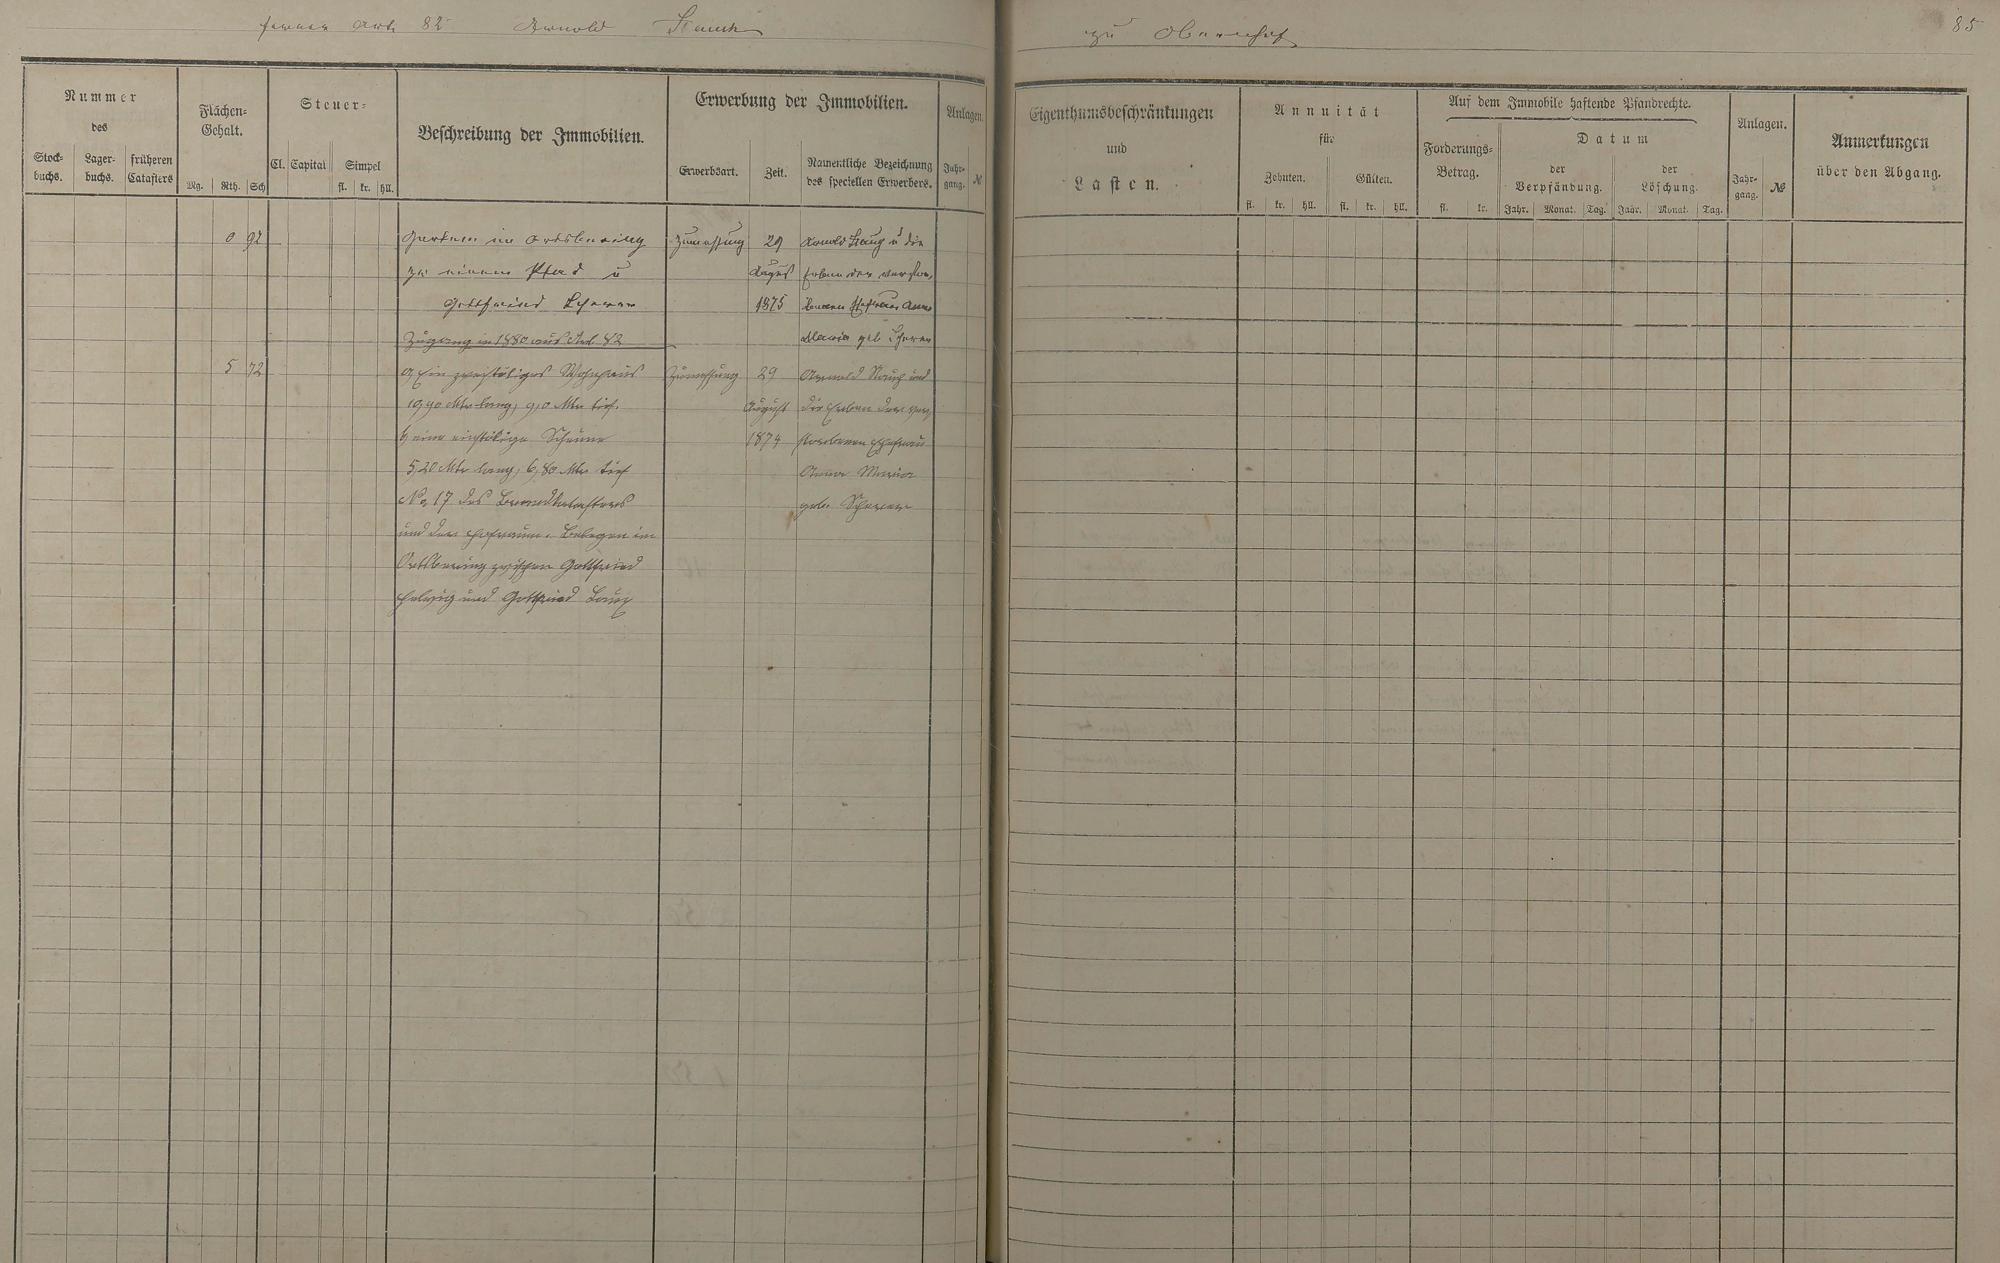 Art. 82 Arnold
zu Obernhof
85
Nummer
des
Stock-
buchs.
Lager-
buchs.
früheren
Catasters
Flächen-
Gehalt.
Mg. Rth. Sch
Steuer-
Cl. Capital Simpel
fl. kr. hll.
Beschreibung der Immobilien.
Erwerbung der Immobilien.
Erwerbsart. Zeit.
Namentliche Bezeichnung
des speciellen Erwerbers.
Anlagen.
Jahr-
gang. №
Eigenthumsbeschränkungen
und
Lasten.
Annuität
für
Zehnten. Gülten.
fl. kr. hll. fl. kr. hll.
Auf dem Immobile haftende Pfandrechte.
Forderungs-
Betrag.
fl. kr.
Datum
der
Verpfändung.
der
Löschung.
Jahr. Monat. Tag. Jahr. Monat. Tag.
Anlagen.
Jahr-
gang. №
Anmerkungen
über den Abgang.
0 92 im Ortsbering Zumessung 29 Arnold u die
einem Pfad u Erben der
Gottfried Scherer 1875 Ehefrau Anna
Zugang in 1880 aus Art. 82 Maria geb. Scherer
5 72 a, Ein zweistökiges Wohnhaus Zumessung 29 Arnold und
10,90 Mtr lang, 9,0 Mtr tief. August die Erben der ver-
b, eine einstökige Scheune 1874 storbenen Ehefrau
5,20 Mtr lang, 6,80 Mtr tief Anna Maria
No 17 des Brandkatasters geb. Scherer
und der Hofraum. Belegen im
Ortsbering zwischen Gottfried
Helwig und Gottfried